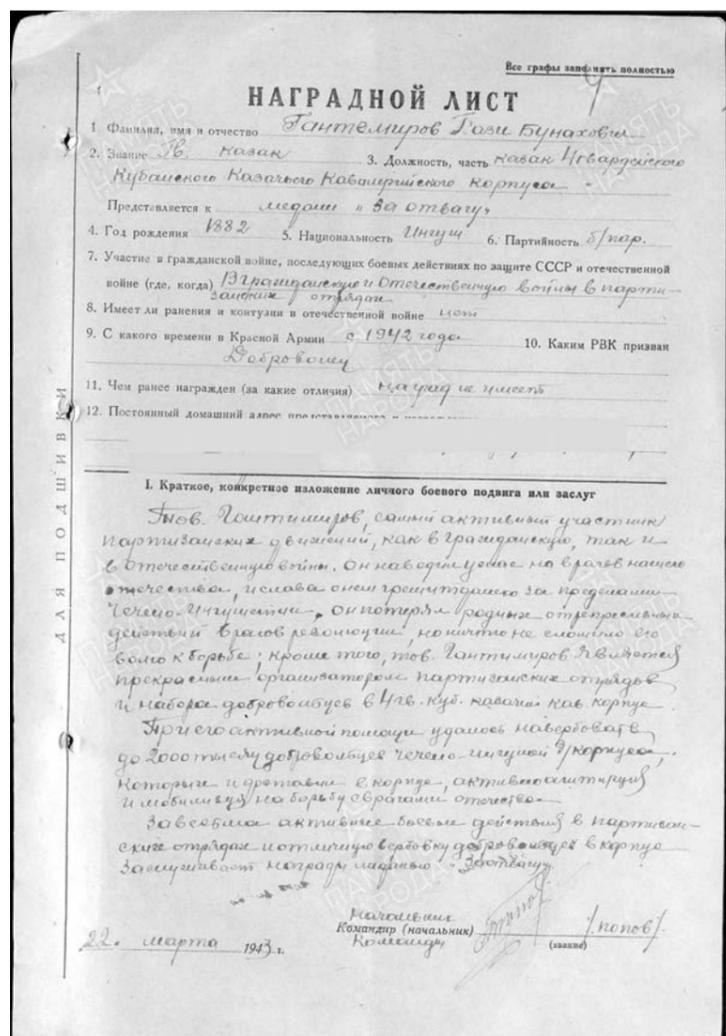 Все графы заполнить полностью
НАГРАДНОЙ ЛИСТ
1. Фамилия, имя и отчество Гантемиров Гази Бунахович
2. Звание Гв. казак 3. Должность, часть казак 4 гвардейского
Кубанского Казачьего Кавалерийского корпуса
Представляется к медали "За отвагу"
4. Год рождения 1882 5. Национальность Ингуш 6. Партийность б/пар.
7. Участие в гражданской войне, последующих боевых действиях по защите СССР и отечественной
войне (где, когда) В гражданскую и отечественную войны в парти-
занских отрядах
8. Имеет ли ранения и контузии в отечественной войне нет
9. С какого времени в Красной Армии с 1942 года 10. Каким РВК призван
Доброволец
11. Чем ранее награжден (за какие отличия) наград не имеет
12. Постоянный домашний адрес
I. Краткое, конкретное изложение личного боевого подвига или заслуг
Тов. Гантимиров, самый активный участник
партизанских движений, как в гражданскую, так и
в отечественную войны. Он наводил ужас на врагов нашего
отечества, и слава о нем далеко за пределами
Чечено-Ингушетии. Он потерял родных от репрессивных
действий врагов революции, но ничто не сломило его
волю к борьбе; кроме того, тов. Гантимиров является
прекрасным организатором партизанских отрядов
и набора добровольцев в 4 гв. куб. казачий кав. корпус.
При его активной помощи удалось навербовать
до 2000 тысяч добровольцев чечено-ингушей д/корпуса,
которых и доставил в корпус, активно агитируя
и мобилизуя на борьбу с врагами отечества.
За весьма активные боевые действия в партизан-
ских отрядах и отличную вербовку добровольцев в корпус
Заслуживает награды медалью "За отвагу".
Начальник
Командир (начальник) /Попов/
Команды (звание)
22. марта 1943 г.
ДЛЯ ПОДШИВКИ
ПАМЯТЬ НАРОДА